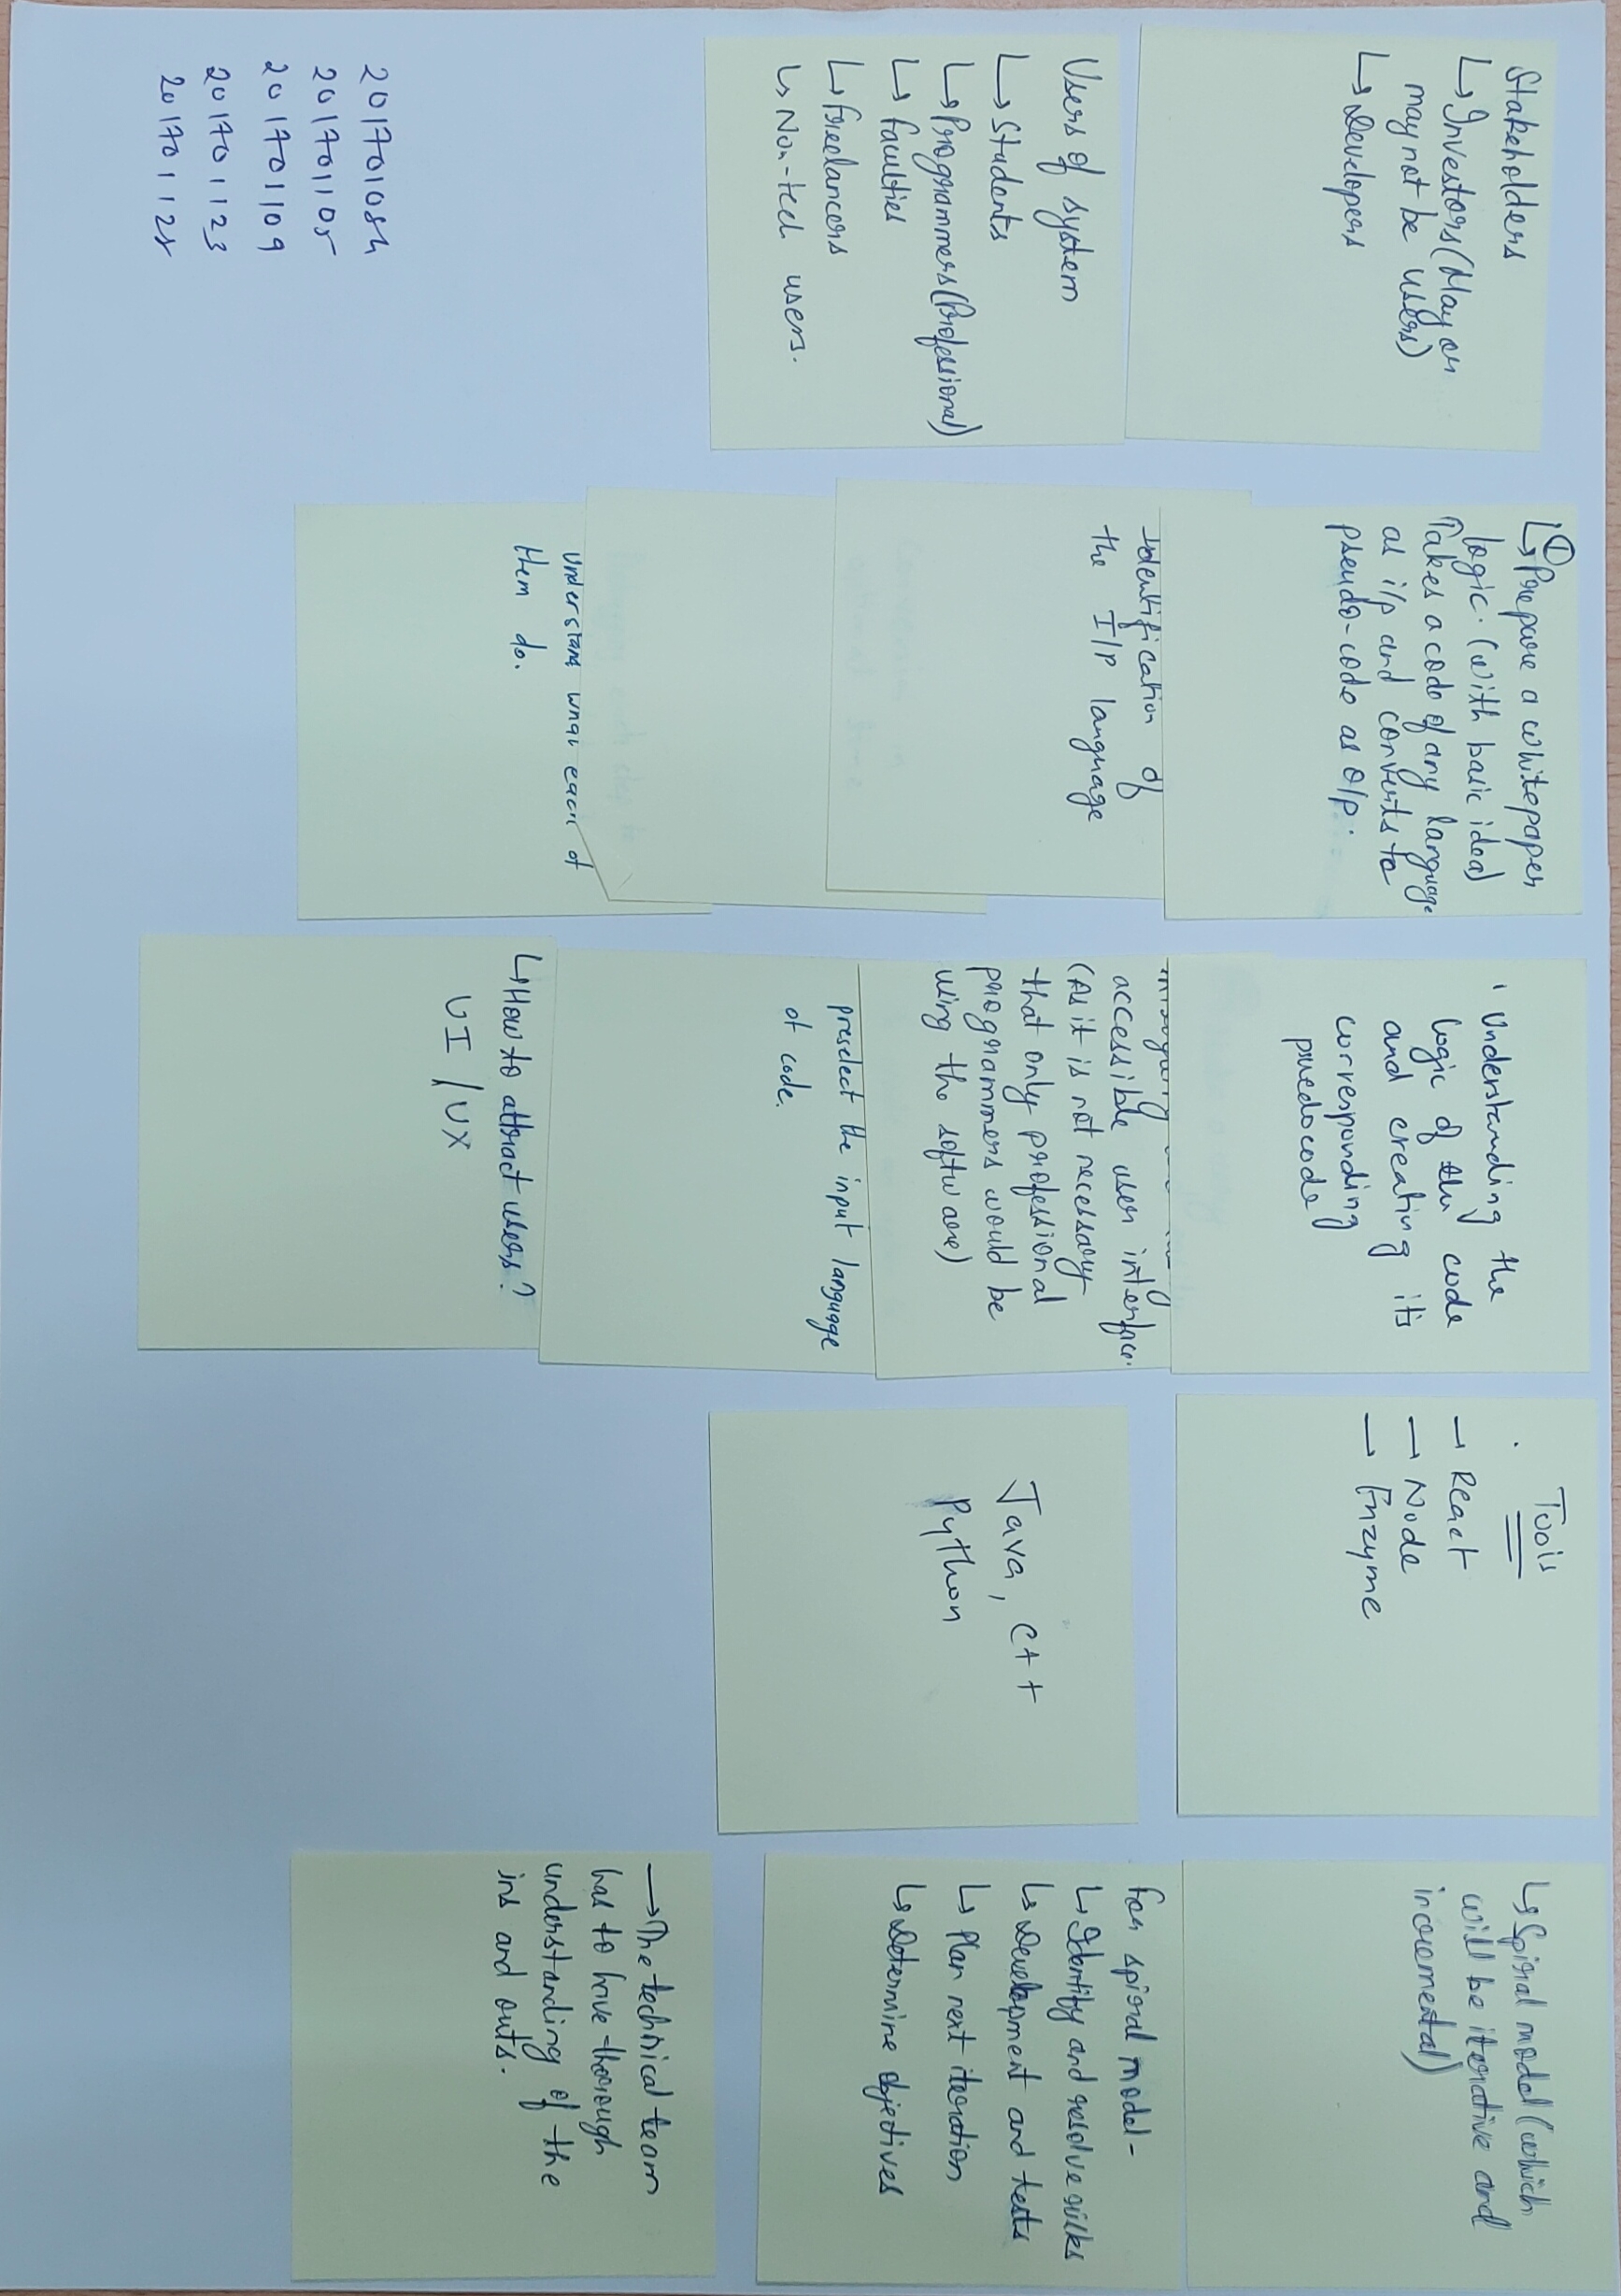 Stakeholders
↳ Investors (May or
may not be users)
↳ Developers
Users of system
↳ Students
↳ Programmers (Professional)
↳ Faculties
↳ Freelancers
↳ Non-tech users.
201701084
201701105
201701109
201701123
201701128
①
↳ Prepare a whitepaper
logic. (with basic idea)
Takes a code of any language
as i/p and converts to
pseudo-code as o/p.
Identification of
the I/P language
understand what each of
them do.
Understanding the
logic of the code
and creating its
corresponding
puedocode
accessible user interface.
(As it is not necessary
that only professional
programmers would be
using the software)
preselect the input language
of code.
↳ How to attract users?
UI/UX
Tools
→ React
→ Node
→ Enzyme
Java, C++
Python
↳ Spiral model (which
will be iterative and
incremental)
For spiral model-
↳ Identify and resolve risks
↳ Development and tests
↳ Plan next iteration
↳ Determine objectives
→ The technical team
has to have thorough
understanding of the
ins and outs.